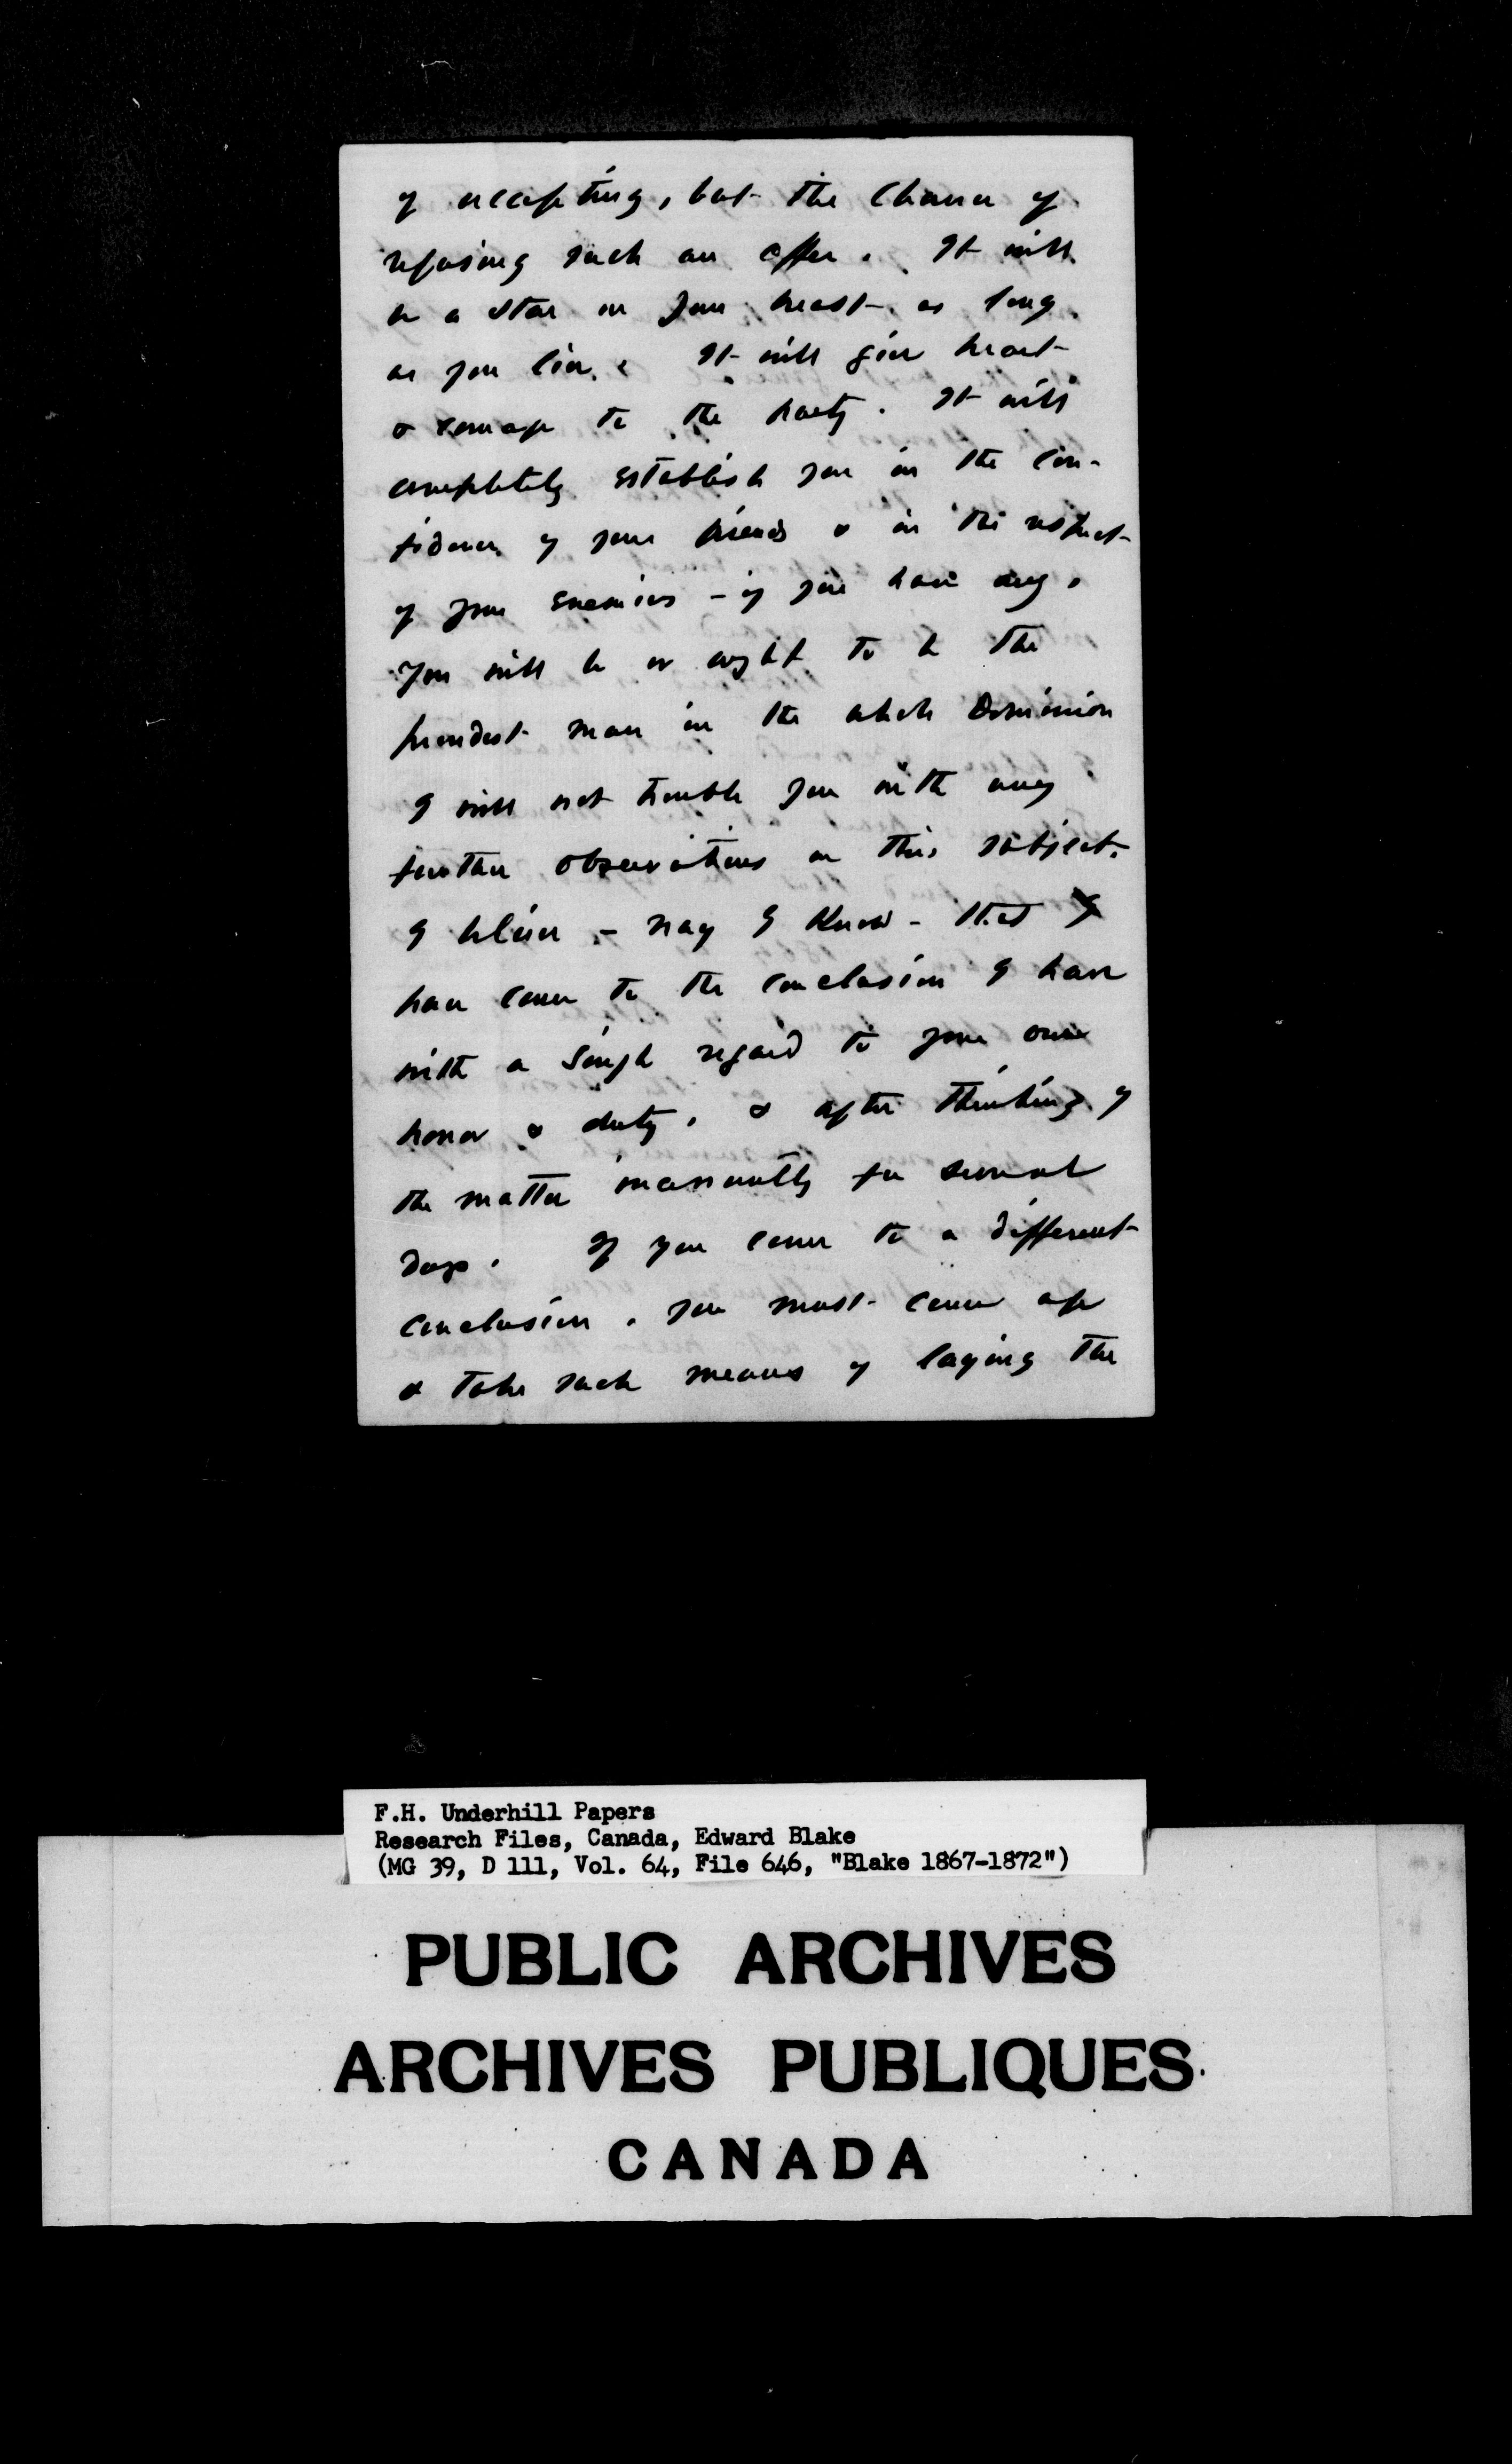 of accepting, but the chance of
refusing such an offer. It will
be a star on your breast as long
as you live. It will give heart
& courage to the party. It will
completely establish you in the con-
fidence of your friends & in the respect
of your enemies - if you have any.
You will be or ought to be the
proudest man in the whole Dominion
I will not trouble you with any
further observations on this subject.
I believe - nay I know - that I
have come to the conclusion I have
with a single regard to your own
honor & duty, & after thinking of
the matter incessantly for several
days. If you come to a different
conclusion, you must come up
& take such means of laying the
F.H. Underhill Papers
Research Files, Canada, Edward Blake
(MG 39, D 111, Vol. 64, File 646, "Blake 1867-1872")
PUBLIC ARCHIVES
ARCHIVES PUBLIQUES
CANADA